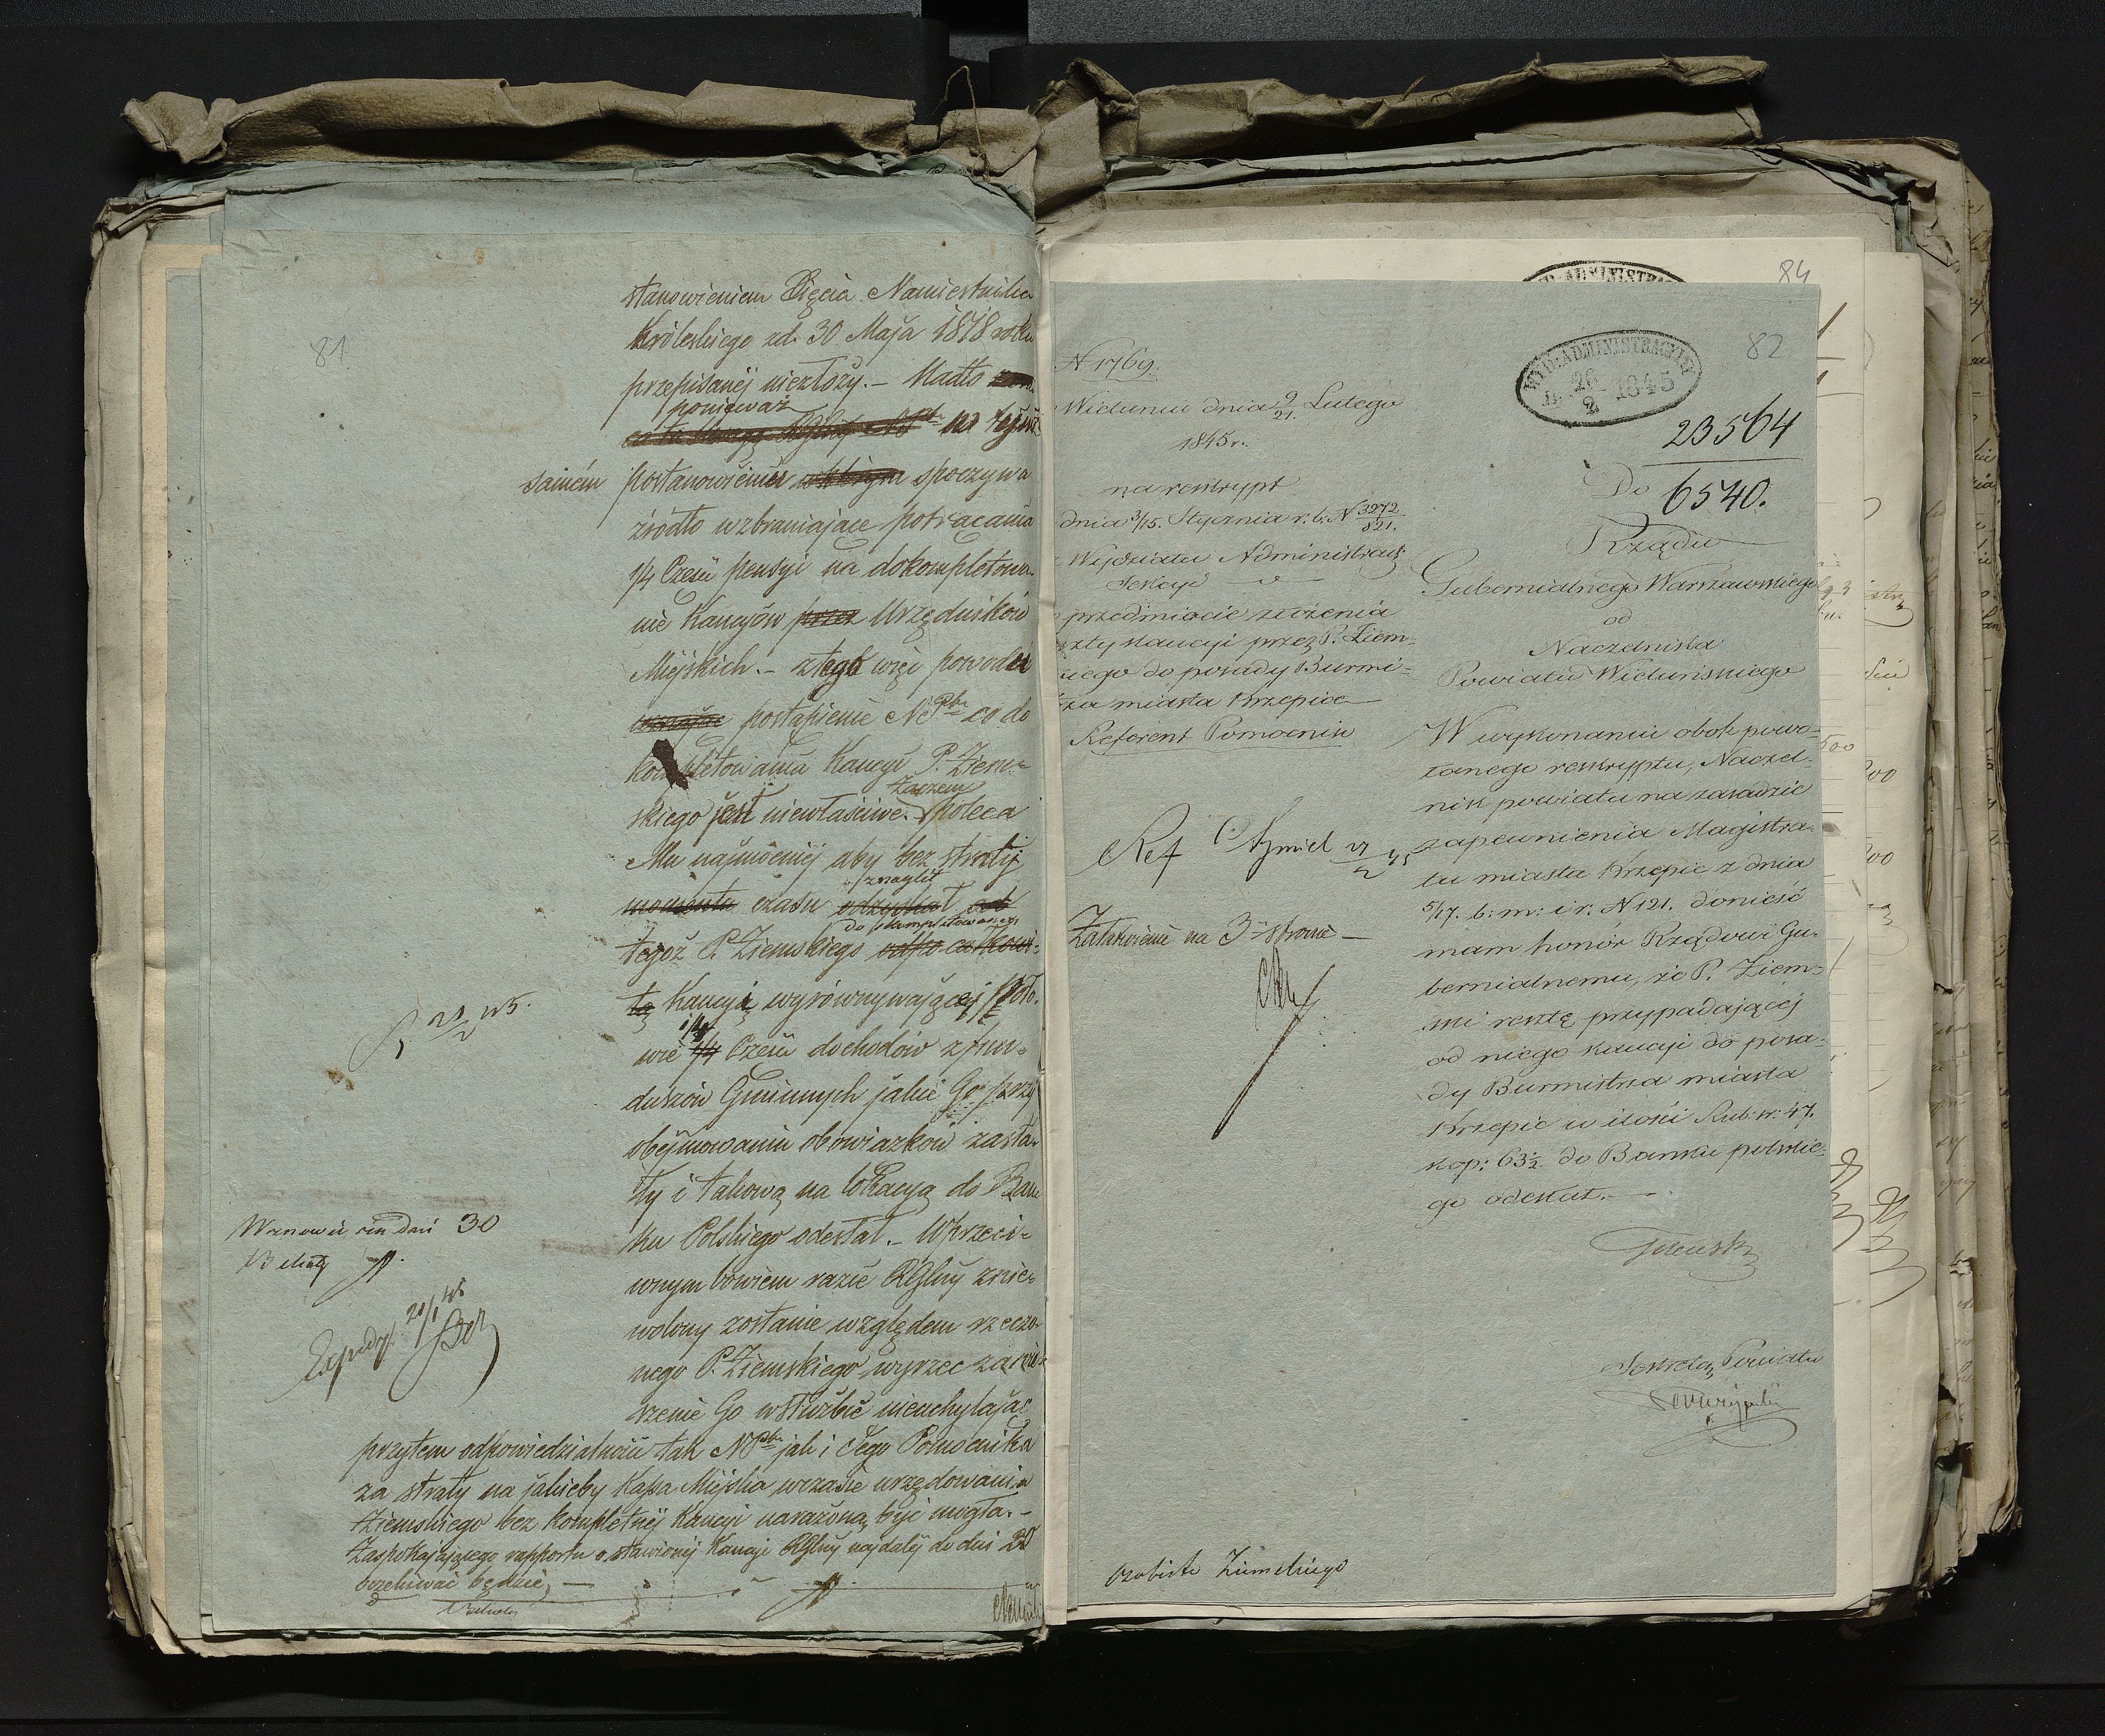 81
stanowieniem Xięcia Namiestnika
Królewskiego zd. 30 Maja 1818 roku
przepisanéj niezłoży. – Nadto
ponieważ
na tymże
samém postanowieniu spoczywa
źródło wzbraniające potrącania
1/4 Części pensyi na dokompletowa-
nie Kaucyów przez Urzędników
Miejskich. – z tego więc powodu
postąpienie NPbr co do
kompletowania Kaucyi P. Ziem-
Zaczem
skiego jest niewłaściwe. poleca
Mu najmocniéj aby bez straty
znaglił
momentu czasu odzyskał od
do skompletowania
tegoż P. Ziemskiego
tą Kaucyi wyrównywającej poło-
wie 1/4 Części dochodów z fun-
duszów Gminnych jakie Go przy
obejmowaniu obowiązków zasta-
ły i takową na lokacyą do Ban
ku Polskiego odesłał. – W przeci-
wnym bowiem razie RGlny znie-
wolony zostanie względem rzeczo-
nego P. Ziemskiego wyrzec zawie-
szenie Go w służbie nieuchylając
przytem odpowiedzialności tak NPbr jak i Jego Pomocnika
za straty na jakieby Kassa Miejska wczasie urzędowania
Ziemskiego bez kompletnéj Kaucyi narażoną być mogła. –
Zaspokajającego rapportu o stawionéj Kaucyi RGlny najdaléj do dni 20
oczekiwać będzie, –
Wznowić za dni 30
Expedy. 20/1 45
84
82
WYD: ADMINISTRACYJNY
26 2 1845
N 1769.
Wieluniu dnia 9/21. Lutego
1845 r.
na reskrypt
dnia 3/15. Stycznia r. b. N 3272/821.
Wydziału Administrac:
Sekcyi
przedmiocie złożenia
reszty kaucyi przez P. Ziem-
skiego do posady Burmi-
strza miasta Krzepice
Referent Pomocnik
23564
Do 6540.
Rządu
Gubernialnego Warszawskiego
od
Naczelnika
Powiatu Wieluńskiego
W wykonaniu obok powo-
łanego reskryptu, Naczel-
nik powiatu na zasadzie
zapewnienia Magistra-
tu miasta Krzepic z dnia
5/17. b: m: i r. N 121. donieść
mam honór Rządowi Gu-
bernialnemu, że P. Ziem-
ski resztę przypadającéj
od niego kaucyi do posa-
dy Burmistrza miasta
Krzepic w ilości Rub: sr: 47.
kop: 63 1/2. do Banku polskie-
go odesłał. –
Sekretarz Powiatu
Załatwienie na 3 stronie –
osobiste Ziemskiego